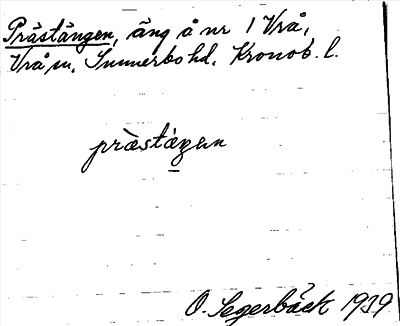 Prästängen, äng å nr 1 Vrå,
Vrå sn, Sunnerbo hd, Kronob. l.
prästäŋen
O. Segerbäck 1939